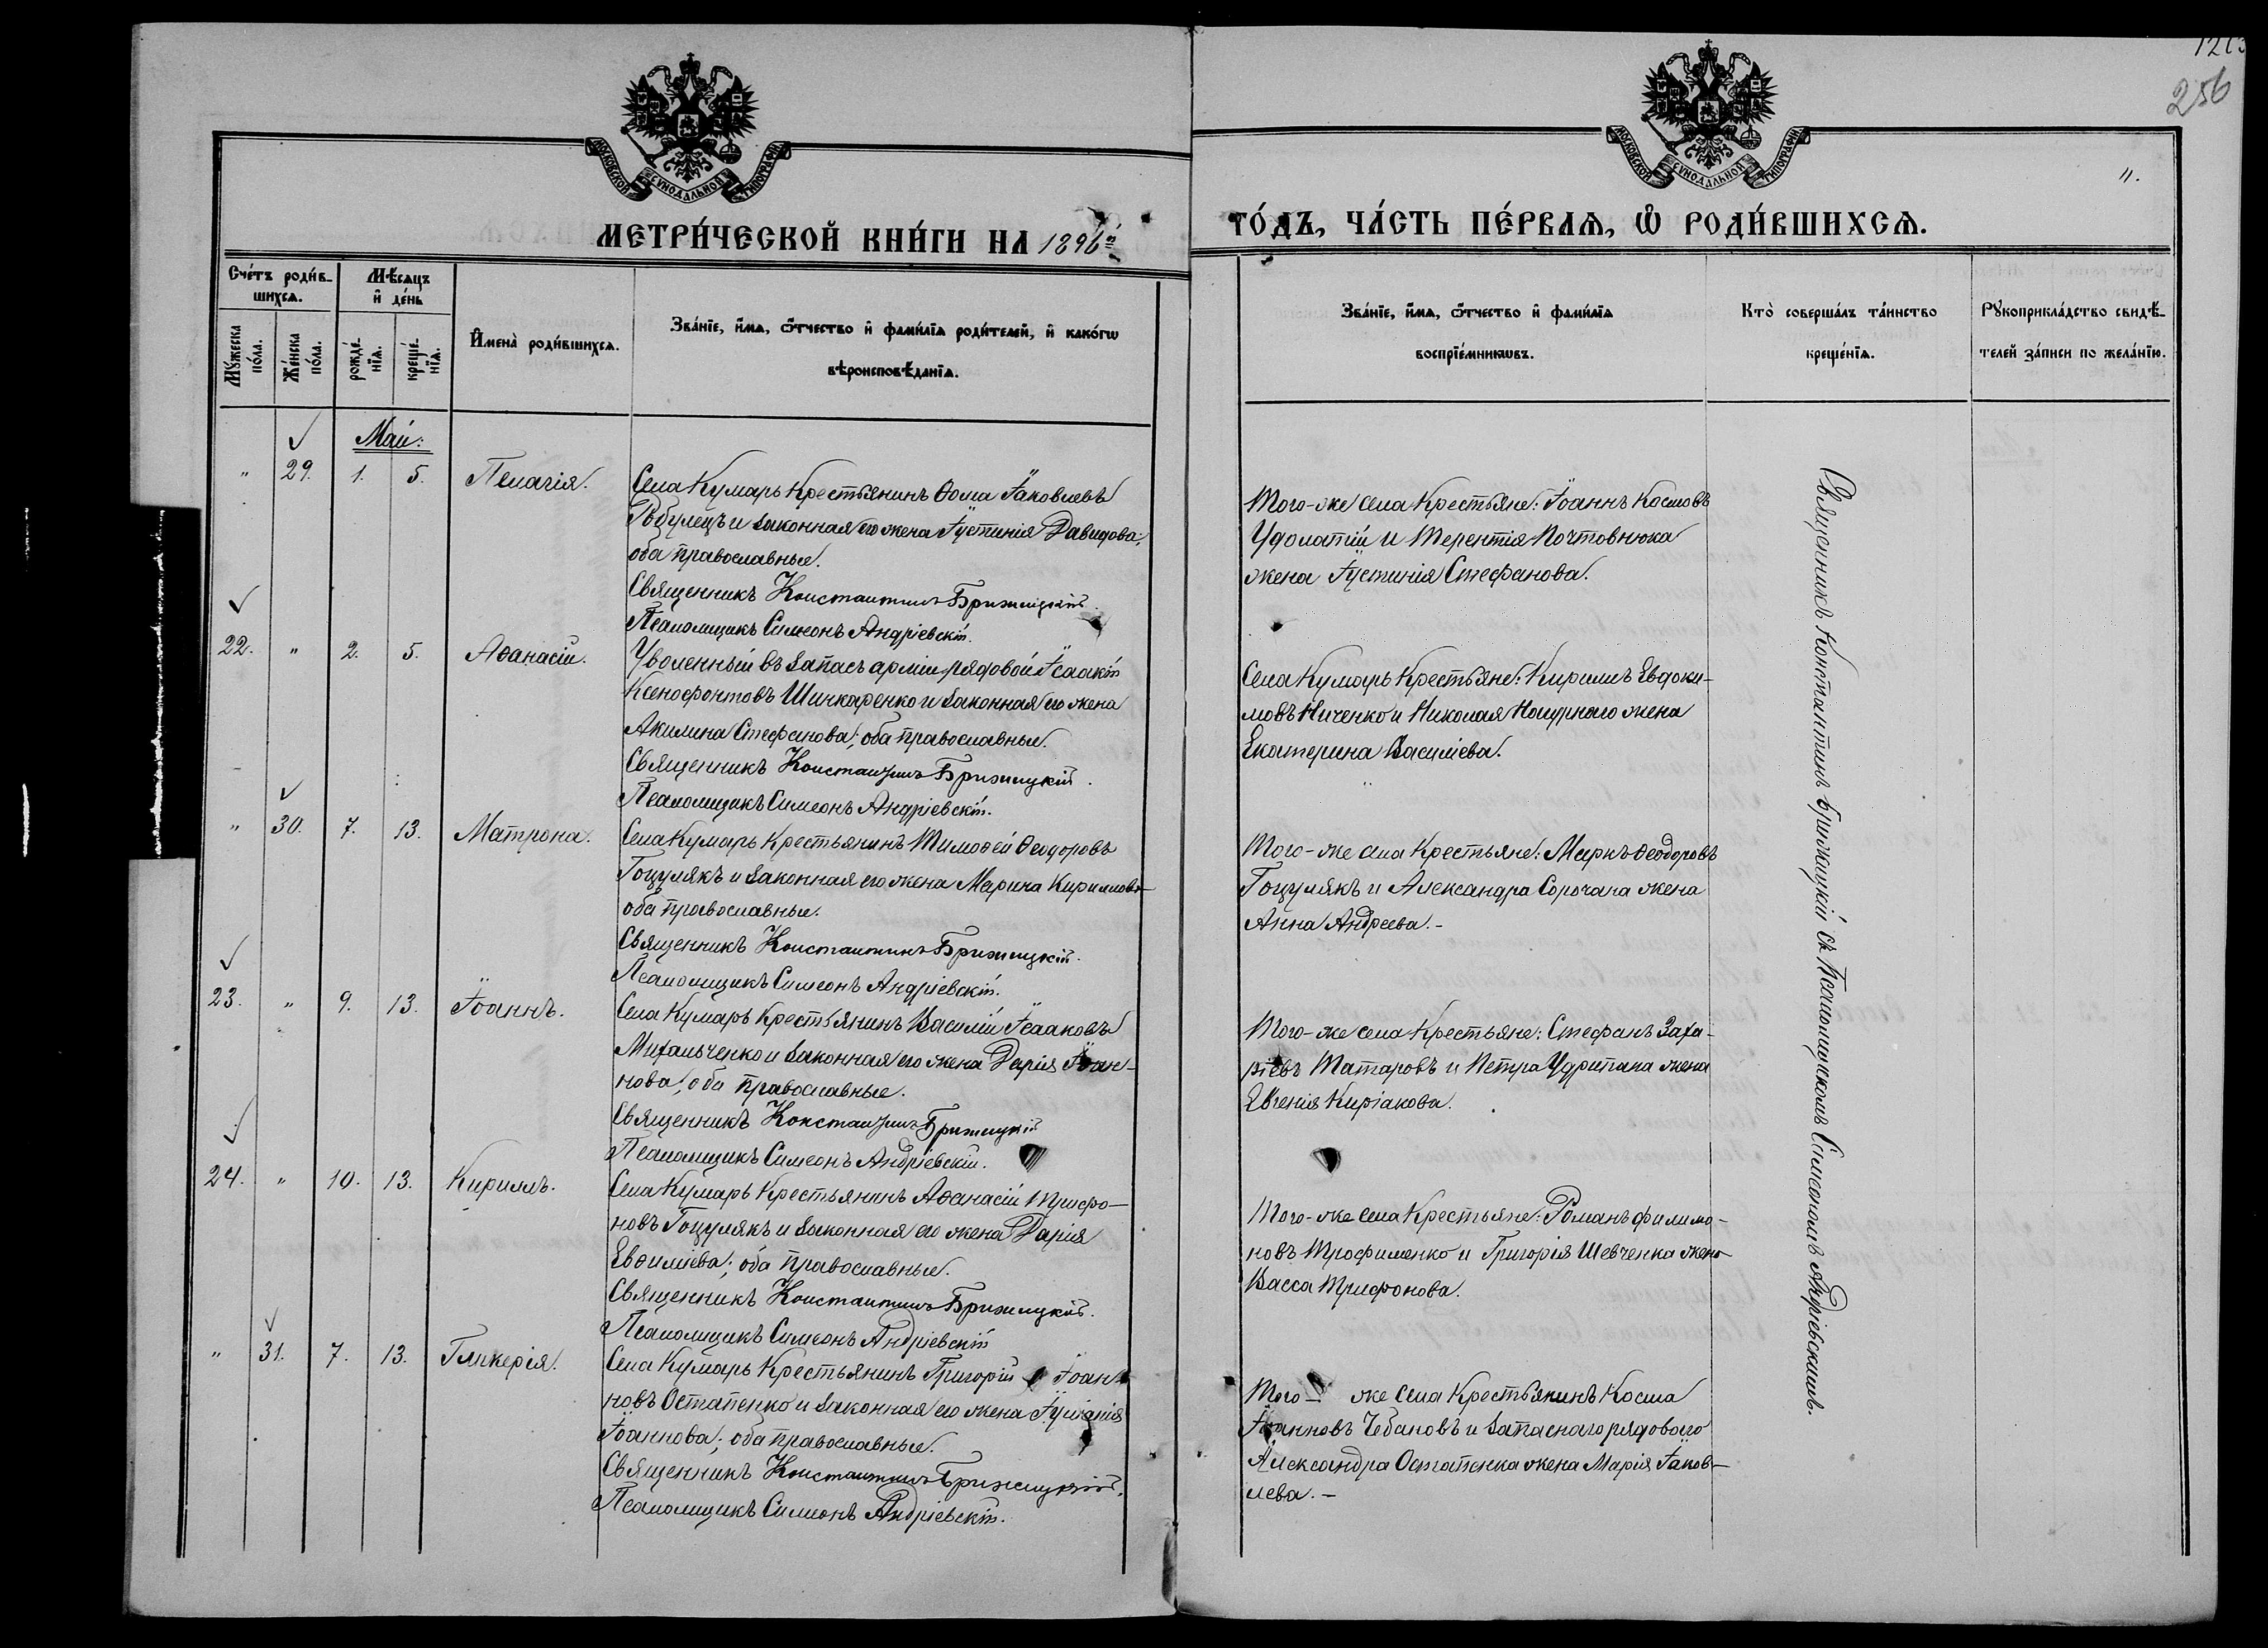 256
МОСКОВСКОЙ СѴНОДАЛЬНОЙ ТИПОГРАФІИ
МОСКОВСКОЙ СѴНОДАЛЬНОЙ ТИПОГРАФІИ
11.
МЕТРИ́ЧЕСКОЙ КНИ́ГИ НА 1896й
ГО́ДЪ, ЧА́СТЬ ПЕ́РВАѦ, Ѽ РОДИ́ВШИХСѦ.
Сче́тъ роди́в-
шихсѧ.
Мѣ́сѧцъ
и҆ де́нь
Мꙋ́жеска
по́ла.
Же́нска
по́ла.
рожде́-
нїѧ.
креще́-
нїѧ.
И҆мена̀ роди́вшихсѧ.
Зва́нїе, и҆́мѧ, ѻ҆́тчество и҆ фамн́лїѧ роди́телей, и҆ како́гѡ
вѣроисповѣ́данїѧ.
Зва́нїе, и҆́мѧ, ѻ҆́тчество и҆ фами́лїѧ
воспрїе́мникѡвъ.
Кто̀ соверша́лъ та́инство
креще́нїѧ.
Рꙋкоприкла́дство свидѣ́-
телей за́писи по жела́нїю.
Май:
" 29. 1. 5. Пелагія.
Села Кумаръ Крестьянинъ Ѳома Іаковлевъ
и законная его жена Іустинія Давидова;
оба православные.
Священникъ Константинъ Брижицкій.
Псаломщикъ Симеонъ Андріевскій.
Того-же села Крестьяне: Іоаннъ Космовъ
Удолатій и Терентія Почтовнюка
жена Іустинія Стефанова.
22. " 2. 5. Аѳанасій.
Уволенный въ запасъ арміи рядовой Ісаакій
Ксенофонтовъ Шинкаренко и законная его жена
Акилина Стефанова; оба православные.
Священникъ Константинъ Брижицкій.
Псаломщикъ Симеонъ Андріевскій.
Села Кумаръ Крестьяне: Кириллъ Евдоки-
мовъ Ниченко и Николая жена
Екатерина Василіева.
" 30. 7. 13. Матрона.
Села Кумаръ Крестьянинъ Тимоѳей Ѳеодоровъ
Гоцулякъ и законная его жена Марина Кириллова
оба православные.
Священникъ Константинъ Брижицкій.
Псаломщикъ Симеонъ Андріевскій.
Того-же села Крестьяне: Маркъ Ѳеодоровъ
Гоцулякъ и Александра Сорочана жена
Анна Андреева.-
23. " 9. 13. Іоаннъ.
Села Кумаръ Крестьянинъ Василій Ісааковъ
Михальченко и законная его жена Дарія Іоан-
нова; оба православные.
Священникъ Константинъ Брижицкій
Псаломщикъ Симеонъ Андріевскій.
Того-же села Крестьяне: Стефанъ Заха-
ріевъ Татаровъ и Петра жена
Евгенія Киріакова.
24. " 10. 13. Кириллъ.
Села Кумаръ Крестьянинъ Аѳанасій Трифо-
новъ Гоцулякъ и законная его жена Дарія
Евѳиміева; оба православные.
Священникъ Константинъ Брижицкій.
Псаломщикъ Симеонъ Андріевскій
Того-же села Крестьяне: Романъ Филимо-
новъ Трофименко и Григорія Шевченка жена
Васса Трифонова.
" 31. 7. 13. Гликерія.
Села Кумаръ Крестьянинъ Григорій Іоан-
новъ Остапенко и законная его жена Іуліанія
Іоаннова; оба православные.
Священникъ Константинъ Брижицкій.
Псаломщикъ Симеонъ Андріевскій.
Того- же села Крестьянинъ Косма
Іоанновъ Чебановъ и запаснаго рядоваго
Александра Остапенка жена Марія Іаков-
лева.-
Священникъ Константинъ Брижицкій съ Псаломщикомъ Симеономъ Андріевскимъ.